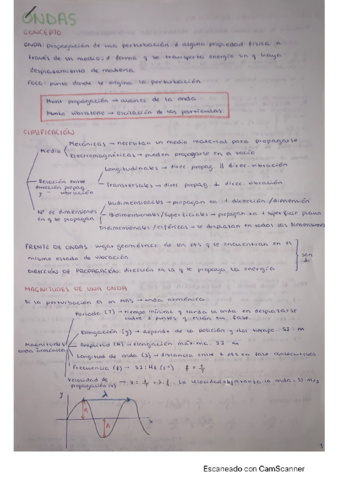 ONDAS
CONCEPTO
ONDA: Propagación de una perturbación d alguna propiedad física a
través de un medio, d forma q se transporta energía sin q haya
desplazamiento de materia.
FOCO: punto donde se origina la perturbación
Movto propagación → avance de la onda
Movto vibratorio → oscilación de las partículas
CLASIFICACIÓN
Medio
Mecánicas → necesitan un medio material para propagarse
Electromagnéticas → pueden propagarse en el vacío
Relación entre
dirección propag.
y vibración
Longitudinales → direc propag. || direc vibración
Transversales → direc propag. ⊥ direc vibración
Nº de dimensiones
en q se propagan
Unidimensionales → propagan en 1 dirección/dimensión
Bidimensionales/superficiales → propagan en 1 superficie plana
Tridimensionales/esféricas → se desplazan en todas las dimensiones
FRENTE DE ONDAS: lugar geométrico de los ptos q se encuentran en el
mismo estado de vibración
DIRECCIÓN DE PROPAGACIÓN: dirección en la q se propaga la energía
MAGNITUDES DE UNA ONDA
Si la perturbación es un MAS → onda armónica.
Magnitudes
onda armónica
Periodo (T) → tiempo mínimo q tarda la onda en desplazarse
entre 2 puntos q están en fase.
Elongación (y) → depende de la posición y del tiempo. SI: m
Amplitud (A) → elongación máxima. SI: m
Longitud de onda (λ) → distancia entre 2 ptos en fase consecutivos.
Frecuencia (f) → SI: Hz (s⁻¹) f = 1/T
Velocidad de
propagación (v) → v = λ/T = λ·f. SI: m/s
y
λ
A
A
x
1
Escaneado con CamScanner